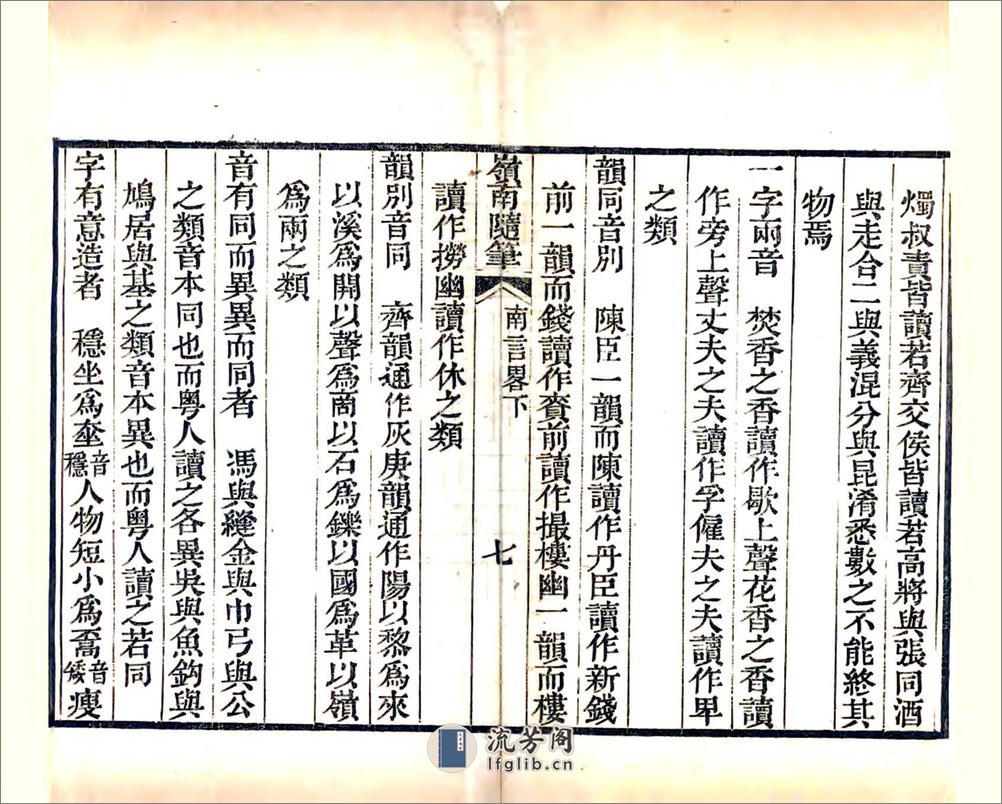 燭叔責皆讀若齊交侯皆讀若高將與張同酒
與走合二與義混分與昆淆悉數之不能終其
物焉
一字兩音　焚香之香讀作歇上聲花香之香讀
作旁上聲丈夫之夫讀作孚僱夫之夫讀作卑
之類
韻同音別　陳臣一韻而陳讀作丹臣讀作新錢
前一韻而錢讀作賚前讀作撮樓幽一韻而樓
嶺南隨筆　南言畧下　七
讀作撈幽讀作休之類
韻別音同　齊韻通作灰庚韻通作陽以黎爲來
以溪爲開以聲爲啇以石爲鑠以國爲革以嶺
爲兩之類
音有同而異異而同者　馮與縫金與巾弓與公
之類音本同也而粤人讀之各異吳與魚鈎與
鳩居與基之類音本異也而粤人讀之若同
字有意造者　穩坐爲𡘙音穩人物短小爲𡚇音矮瘦
流芳阁
lfglib.cn